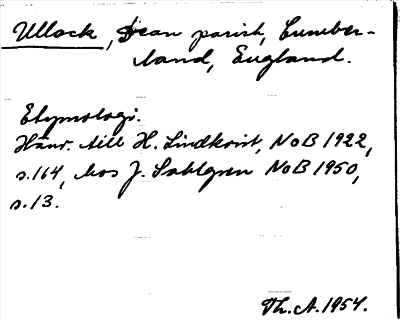 Ullock, Dean parish, Cumber-
land, England.
Etymologi.
Hänv. till H. Lindkvist, NoB 1922,
s.164, hos J. Sahlgren NoB 1950,
s.13.
Th. A. 1954.